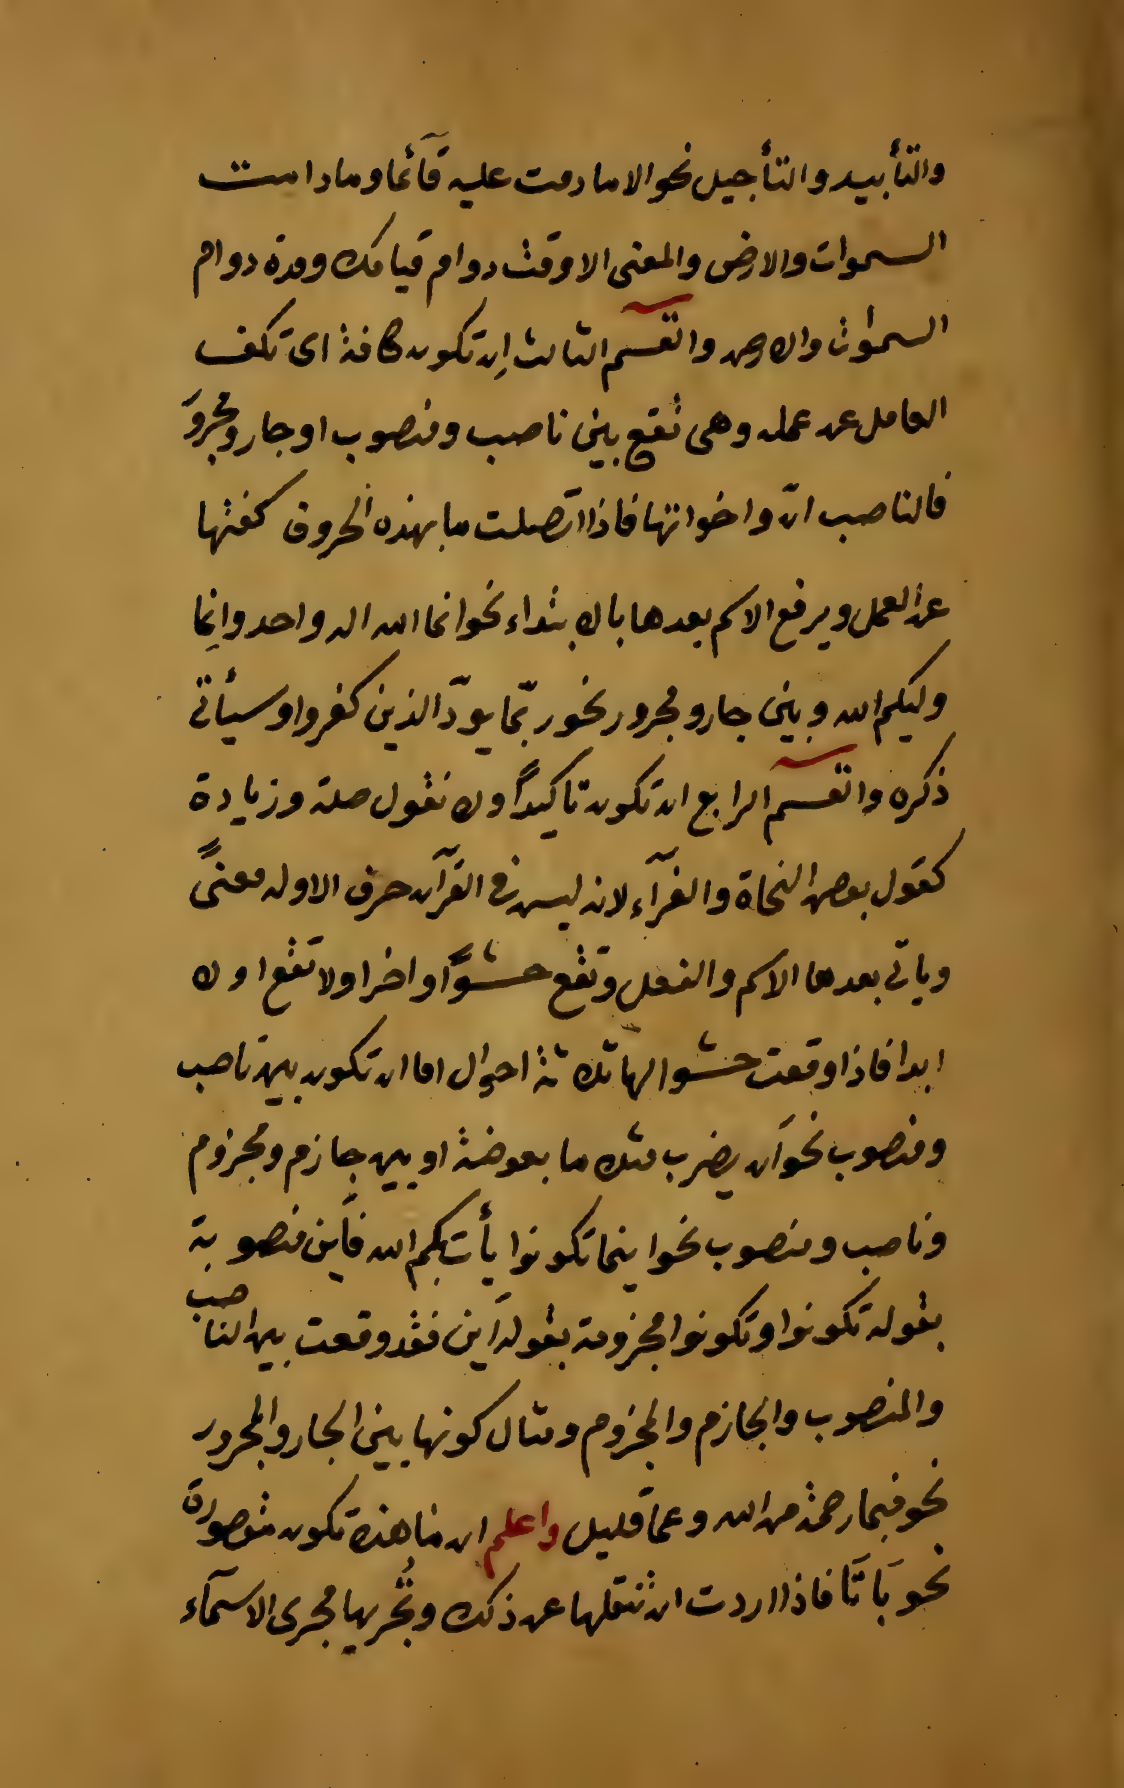 والتأبيد والتأجيل نحو الا ما دمت عليه قآئما وما دامت
السموات والارض والمعنى الا وقت دوام قيامك ومدة دوام
السموات والارض والقسم الثالث ان تكون كافة اى تكف
العامل عن عمله وهى تقع بين ناصب ومنصوب او جار ومجرور
فالناصب انّ واخواتها فاذا اتصلت ما بهذه الحروف كفتها
عن العمل ويرفع الاسم بعدها بالابتداء نحو انما الله اله واحد وانما
وليكم الله وبين جار ومجرور نحو ربّما يودّ الذين كفروا وسيأتى
ذكره والقسم الرابع ان تكون تاكيداً ولا نقول صلة وزيادة
كقول بعض النحاة والقرآء لانه ليس فى القرآن حرف الا وله معنىً
وياتى بعدها الاسم والفعل وتقع حشوًا واخرا ولا تقع اولا
ابدا فاذا وقعت حشوا لها ثلاثة احوال اما ان تكون بين ناصب
ومنصوب نحو ان يضرب مثلا ما بعوضة او بين جازم ومجزوم
وناصب ومنصوب نحو اينما تكونوا يأت بكم الله فأين منصوبة
بقوله تكونوا وتكونوا مجزومة بقوله اين فقد وقعت بين الناصب
والمنصوب والجازم والمجزوم ومثال كونها بين الجار والمجرور
نحو فبما رحمة من الله وعما قليل واعلم ان ما هذه تكون مقصورة
نحو بَا تَا فاذا اردت ان تنقلها عن ذلك وتُجريها مجرى الاسمآء